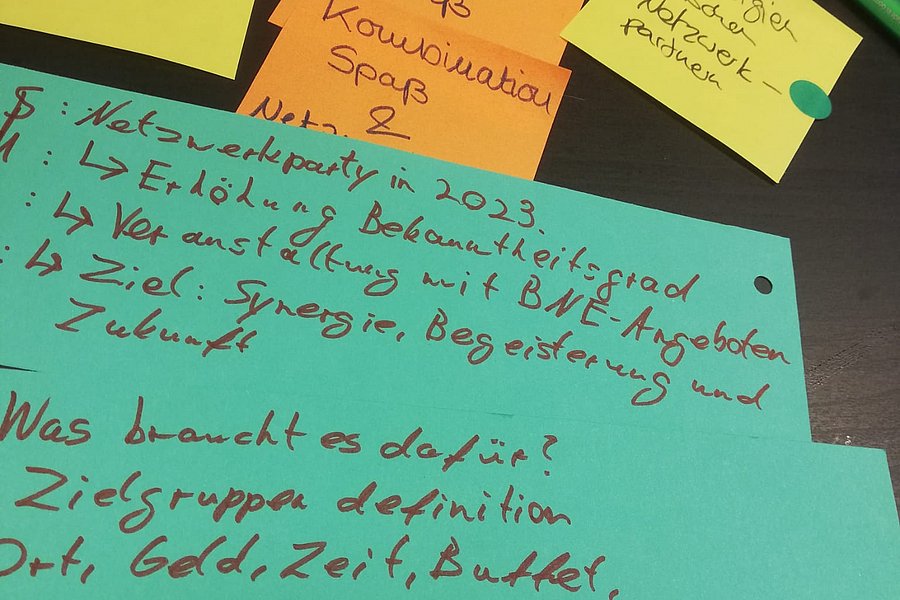 Kombination
Spaß
&
Netzwerk-
partnern
: Netzwerkparty in 2023.
: ↳ Erhöhung Bekanntheitsgrad
: ↳ Veranstaltung mit BNE-Angeboten
: ↳ Ziel: Synergie, Begeisterung und
Zukunft
Was braucht es dafür?
Zielgruppen definition
Ort, Geld, Zeit, Buffet,